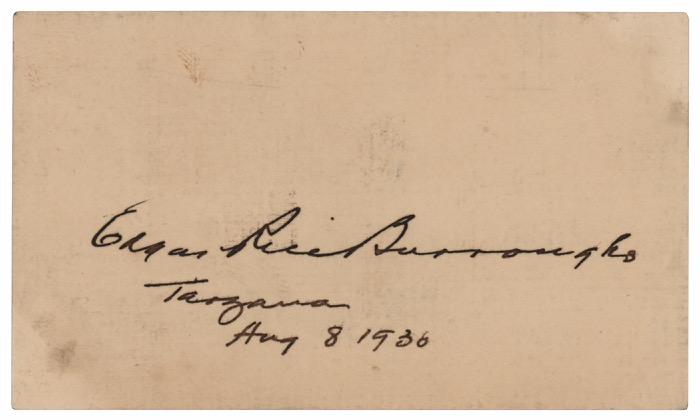 Edgar Rice Burroughs
Tarzana
Aug 8 1936